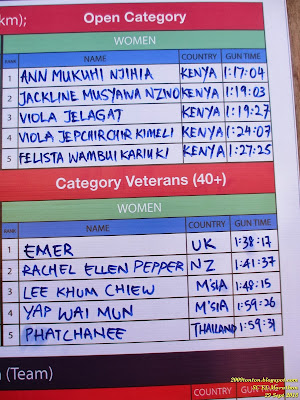 km);
Open Category
WOMEN
RANK NAME COUNTRY GUN TIME
1 ANN MUKUHI NJIHIA KENYA 1:17:04
2 JACKLINE MUSYAWA NZIVO KENYA 1:19:03
3 VIOLA JELAGAT KENYA 1:19:27
4 VIOLA JEPCHIRCHIR KIMELI KENYA 1:24:07
5 FELISTA WAMBUI KARIUKI KENYA 1:27:25
Category Veterans (40+)
WOMEN
RANK NAME COUNTRY GUN TIME
1 EMER UK 1:38:17
2 RACHEL ELLEN PEPPER NZ 1:41:37
3 LEE KHUM CHIEW M'SIA 1:48:15
4 YAP WAI MUN M'SIA 1:59:26
5 PHATCHANEE THAILAND 1:59:31
(Team)
COUNTRY GUN TIME
2009tonton.blogspot.com